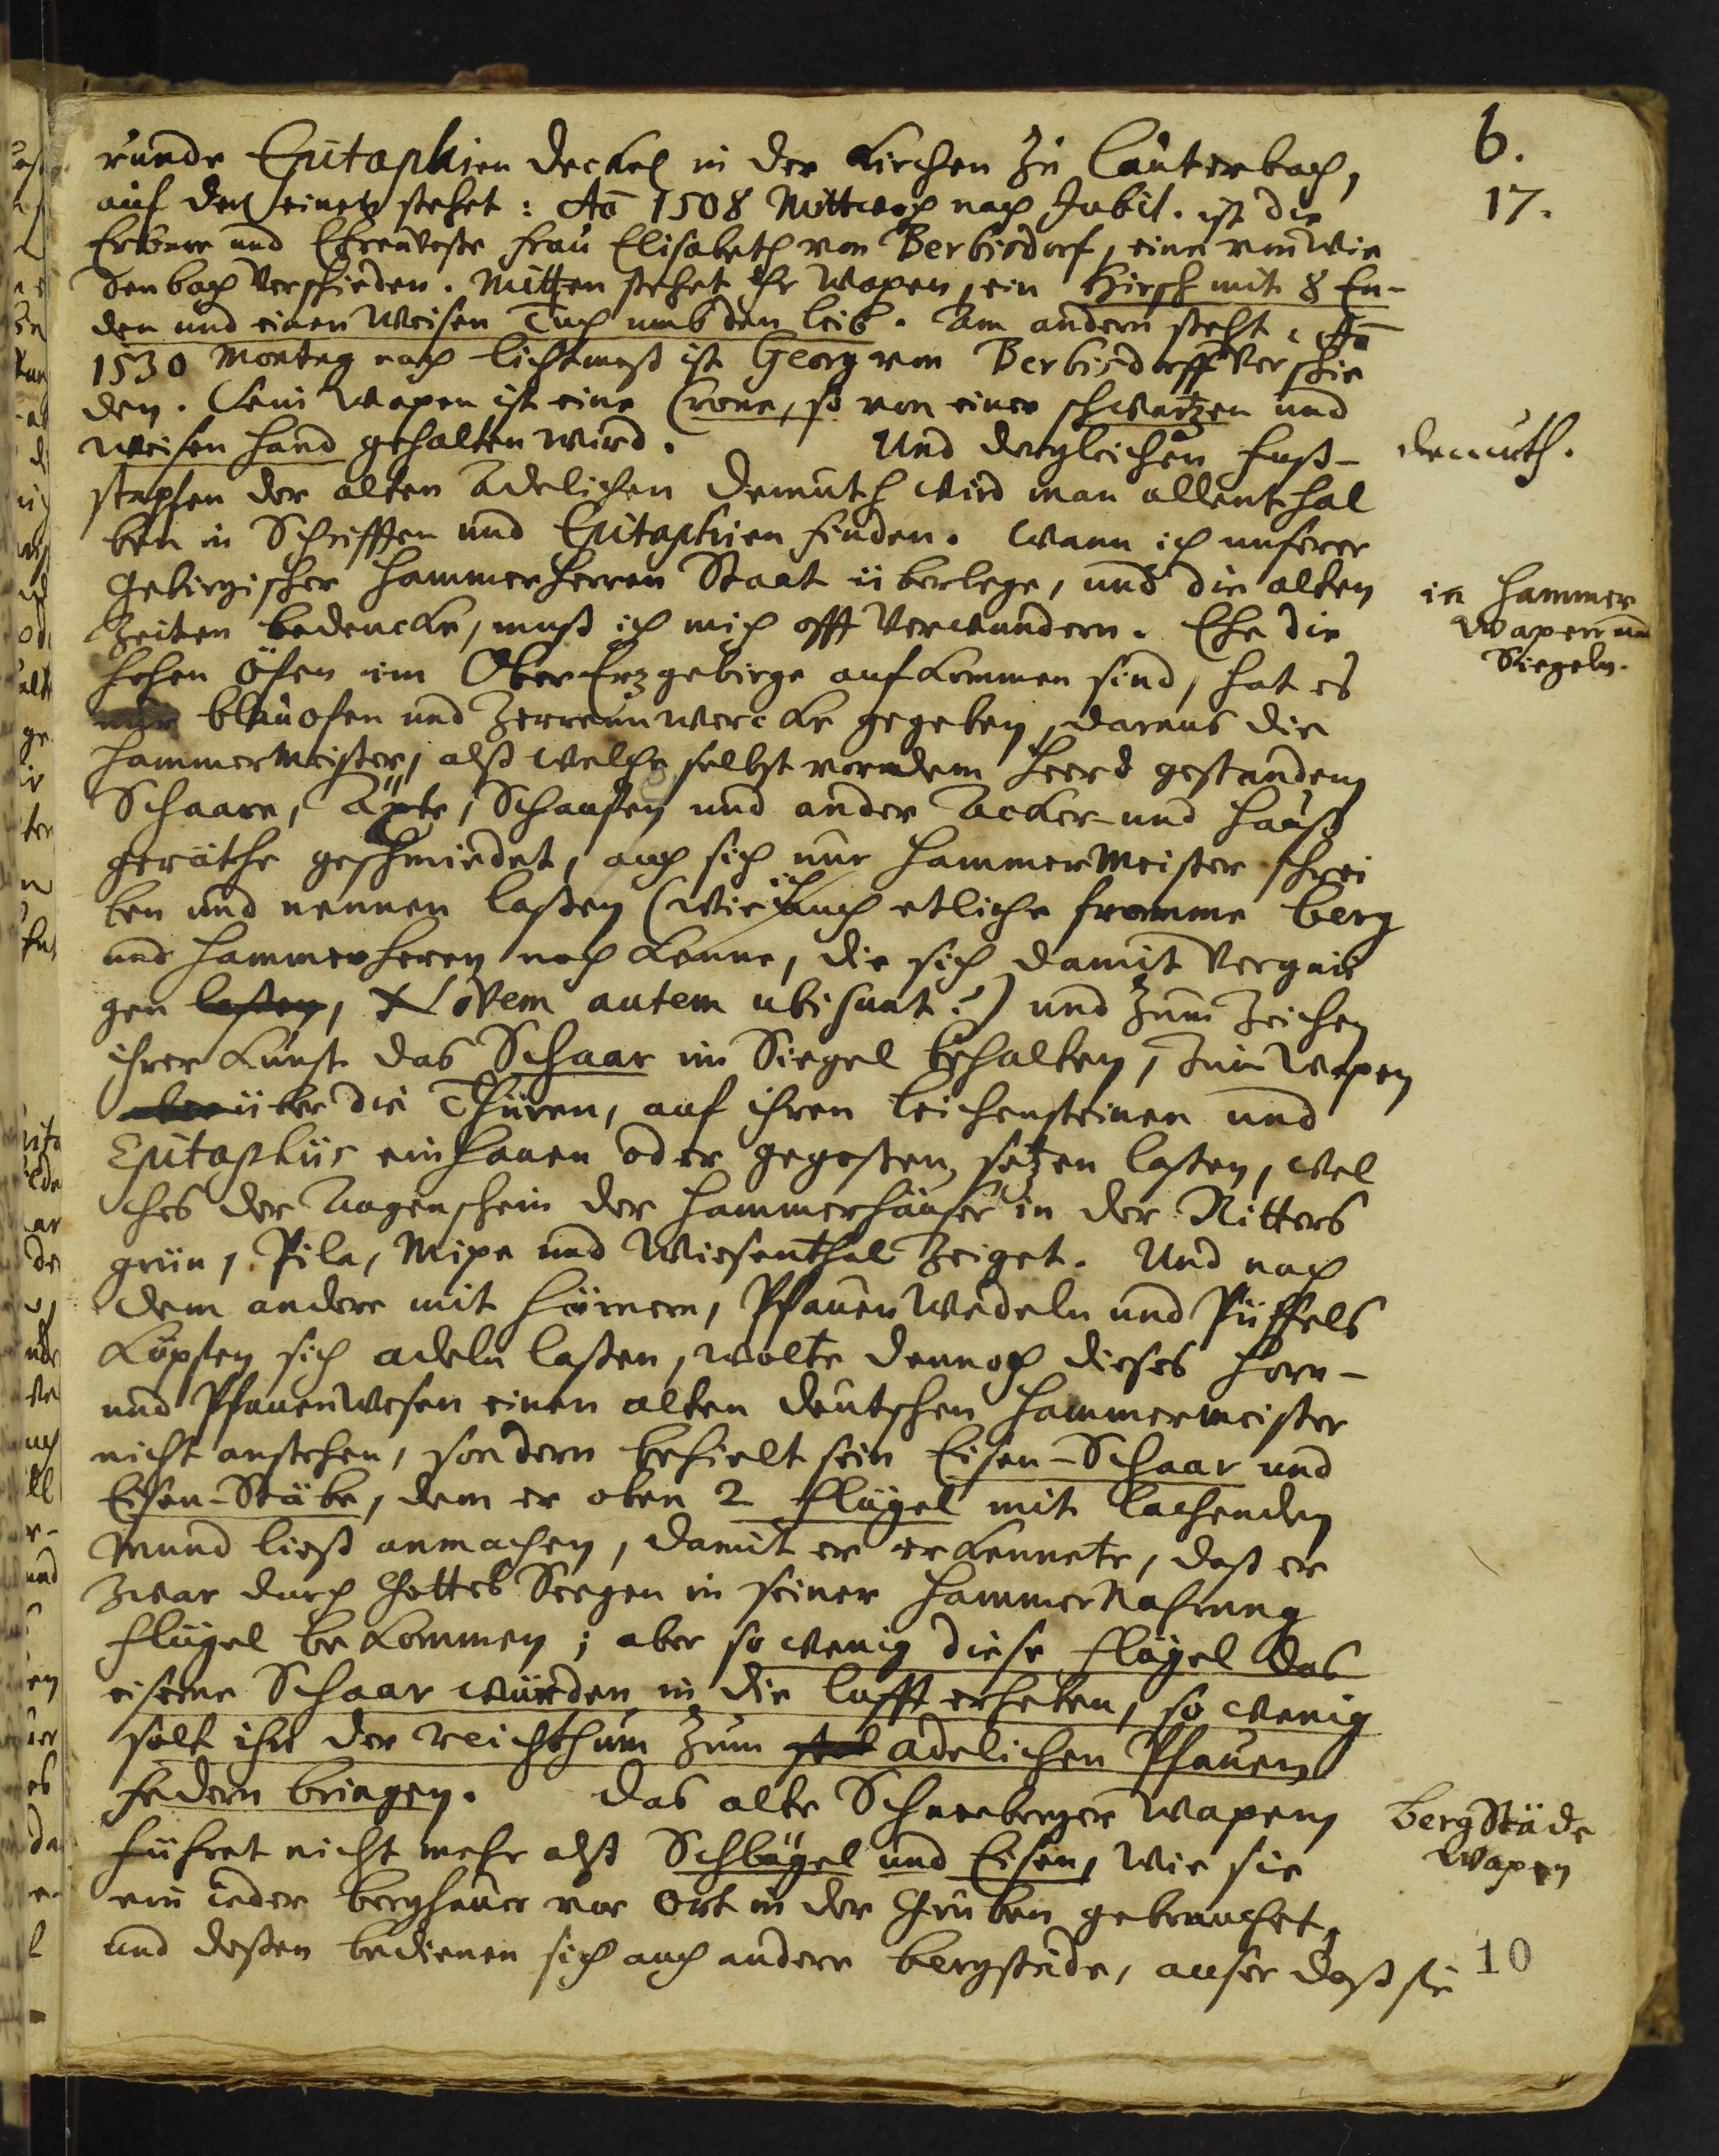 6.
17.
runde Epitaphien deckel in der Kirchen zu Lauterbach,
auf den einem stehet: Aō 1508 Mittwoch nach Jubil. ist die
Erbare und Ehrenveste Frau Elisabeth von Berbisdorf, eine von Wie
denbach verschieden. Mitten stehet ihr Wapen, ein Hirsch mit 8 En-
den und einen weisen Tuch umb den Leib. Am andern steht: Aō
1530 Montag nach Lichtmeß ist Georg von Berbisdorff verschie
den. Sein Wapen ist eine Crone, so von einer schwartzen und
weisen Hand gehalten wird. Und dergleichen Fuß-
stapfen der alten Adelichen Demuth wird man allenthal
ben in Schrifften und Epitaphien finden. Wann ich unserer
Gebirgischer Hammerherren Staat überlege, und die alten
Zeiten bedencke, muß ich mich offt verwundern. Ehe die
hohen Öfen im OberErzgebirge aufkommen sind, hat es
nur blauofen und Zerrennwercke gegeben, daraus die
HammerMeister, alß welche selbst vor dem Heerd gestanden,
Schaare, Äxte, Schaufeln und ander Acker- und Hauß
geräthe geschmiedet, auch sich nur HammerMeister schrei
ben und nennen laßen (wie ich auch etliche fromme Berg
und Hammerherrn noch kenne, die sich damit vergnü
gen laßen, Novem autem ubi sunt?) und zum Zeichen
ihrer Kunst das Schaar im Siegel behalten, zum Wapen
aber über die Thüren, auf ihren Leichensteinen und
Epitaphiis einhauen oder gegoßen, setzen laßen, wel
ches der Augenschein der Hammerhäuser in der Ritters
grün, Pila, Mipa und Wiesenthal zeiget. Und nach
dem andere mit Hörnern, Pfauen Wedeln und Püffels
Köpfen sich adeln laßen, wolte dennoch dieses Horn-
und Pfauenwesen einen alten deutschen Hammermeister
nicht anstehen, sondern behielt sein Eisen-Schaar und
Eisen-Stäbe, dem er oben 2 Flügel mit lachenden
Mund ließ anmachen, damit er erkennete, daß er
zwar durch Gottes Seegen in seiner HammerNahrung
Flügel bekommen; aber so wenig diese Flügel das
eiserne Schaar würden in die Lufft erheben, so wenig
solt ihn der Reichthum zum adelichen Pfauen
federn bringen. Das alte Schneeberger Wapen
führet nicht mehr alß Schlägel und Eisen, wie sie
ein ieder Berghauer vor Ort in der Gruben gebrauchet,
und deßen bedienen sich auch andere Bergstäde, auser daß sie
Demuth.
in Hammer
Wapen und
Siegeln.
BergStäde
Wapen
10